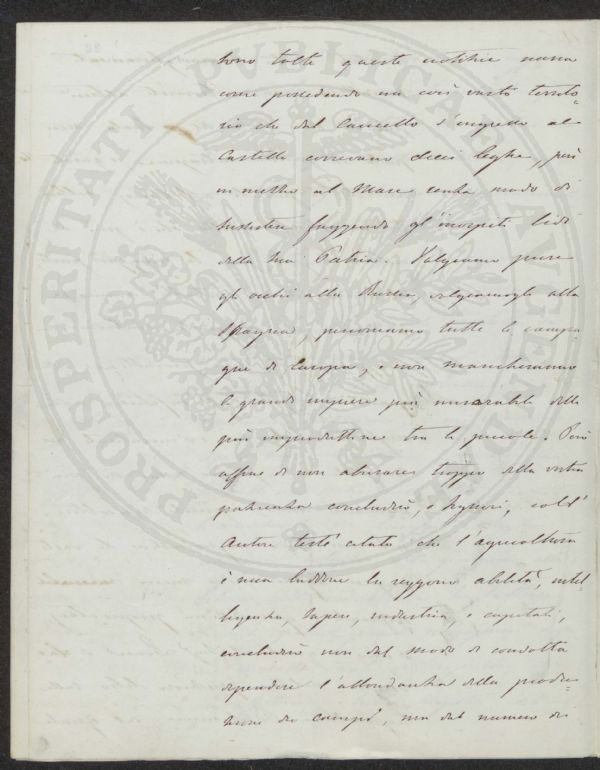 sono tolte queste notizie narra
come possedendo un così vasto territo-
rio che dal Cancello d'ingresso al
Castello correvano dieci leghe, perì
in mezzo al Mare senza modo di
sussistere fuggendo gl'inospiti lidi
della sua Patria. Volgiamo pure
gli occhi alla Russia, volgiamogli alla
Spagna, percorriamo tutte le campa-
gne di Europa, e non mancheranno
le grandi imprese più miserabili delle
più improduttive tra le piccole. Però
affine di non abusare troppo della vostra
pazienza concluderò, o Signori, coll'
Autore testè citato che l'agricoltura
è una laddove la reggono abilità, intel-
ligenza, sapere, industria, e capitali,
concluderò non dal modo di condotta
dipendere l'abbondanza della produ-
zione dei campi, ma dal numero di
PROSPERITATI PUBLICAE AUGENDAE